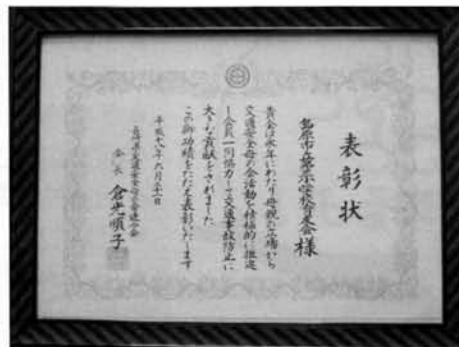 表彰状
島原市立第一小学校育友会 様
貴会は永年にわたり母親の立場から
交通安全母の会活動を積極的に推進
し会員一同協力して交通事故防止に
大きな貢献をされました
この御功績をたたえ表彰いたします
平成十八年六月二十一日
長崎県交通安全母の会連合会
会長 倉光順子